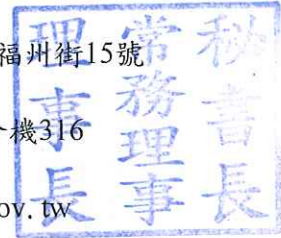 福州街15號
機316
ov.tw
秘書長
常務理事
理事長